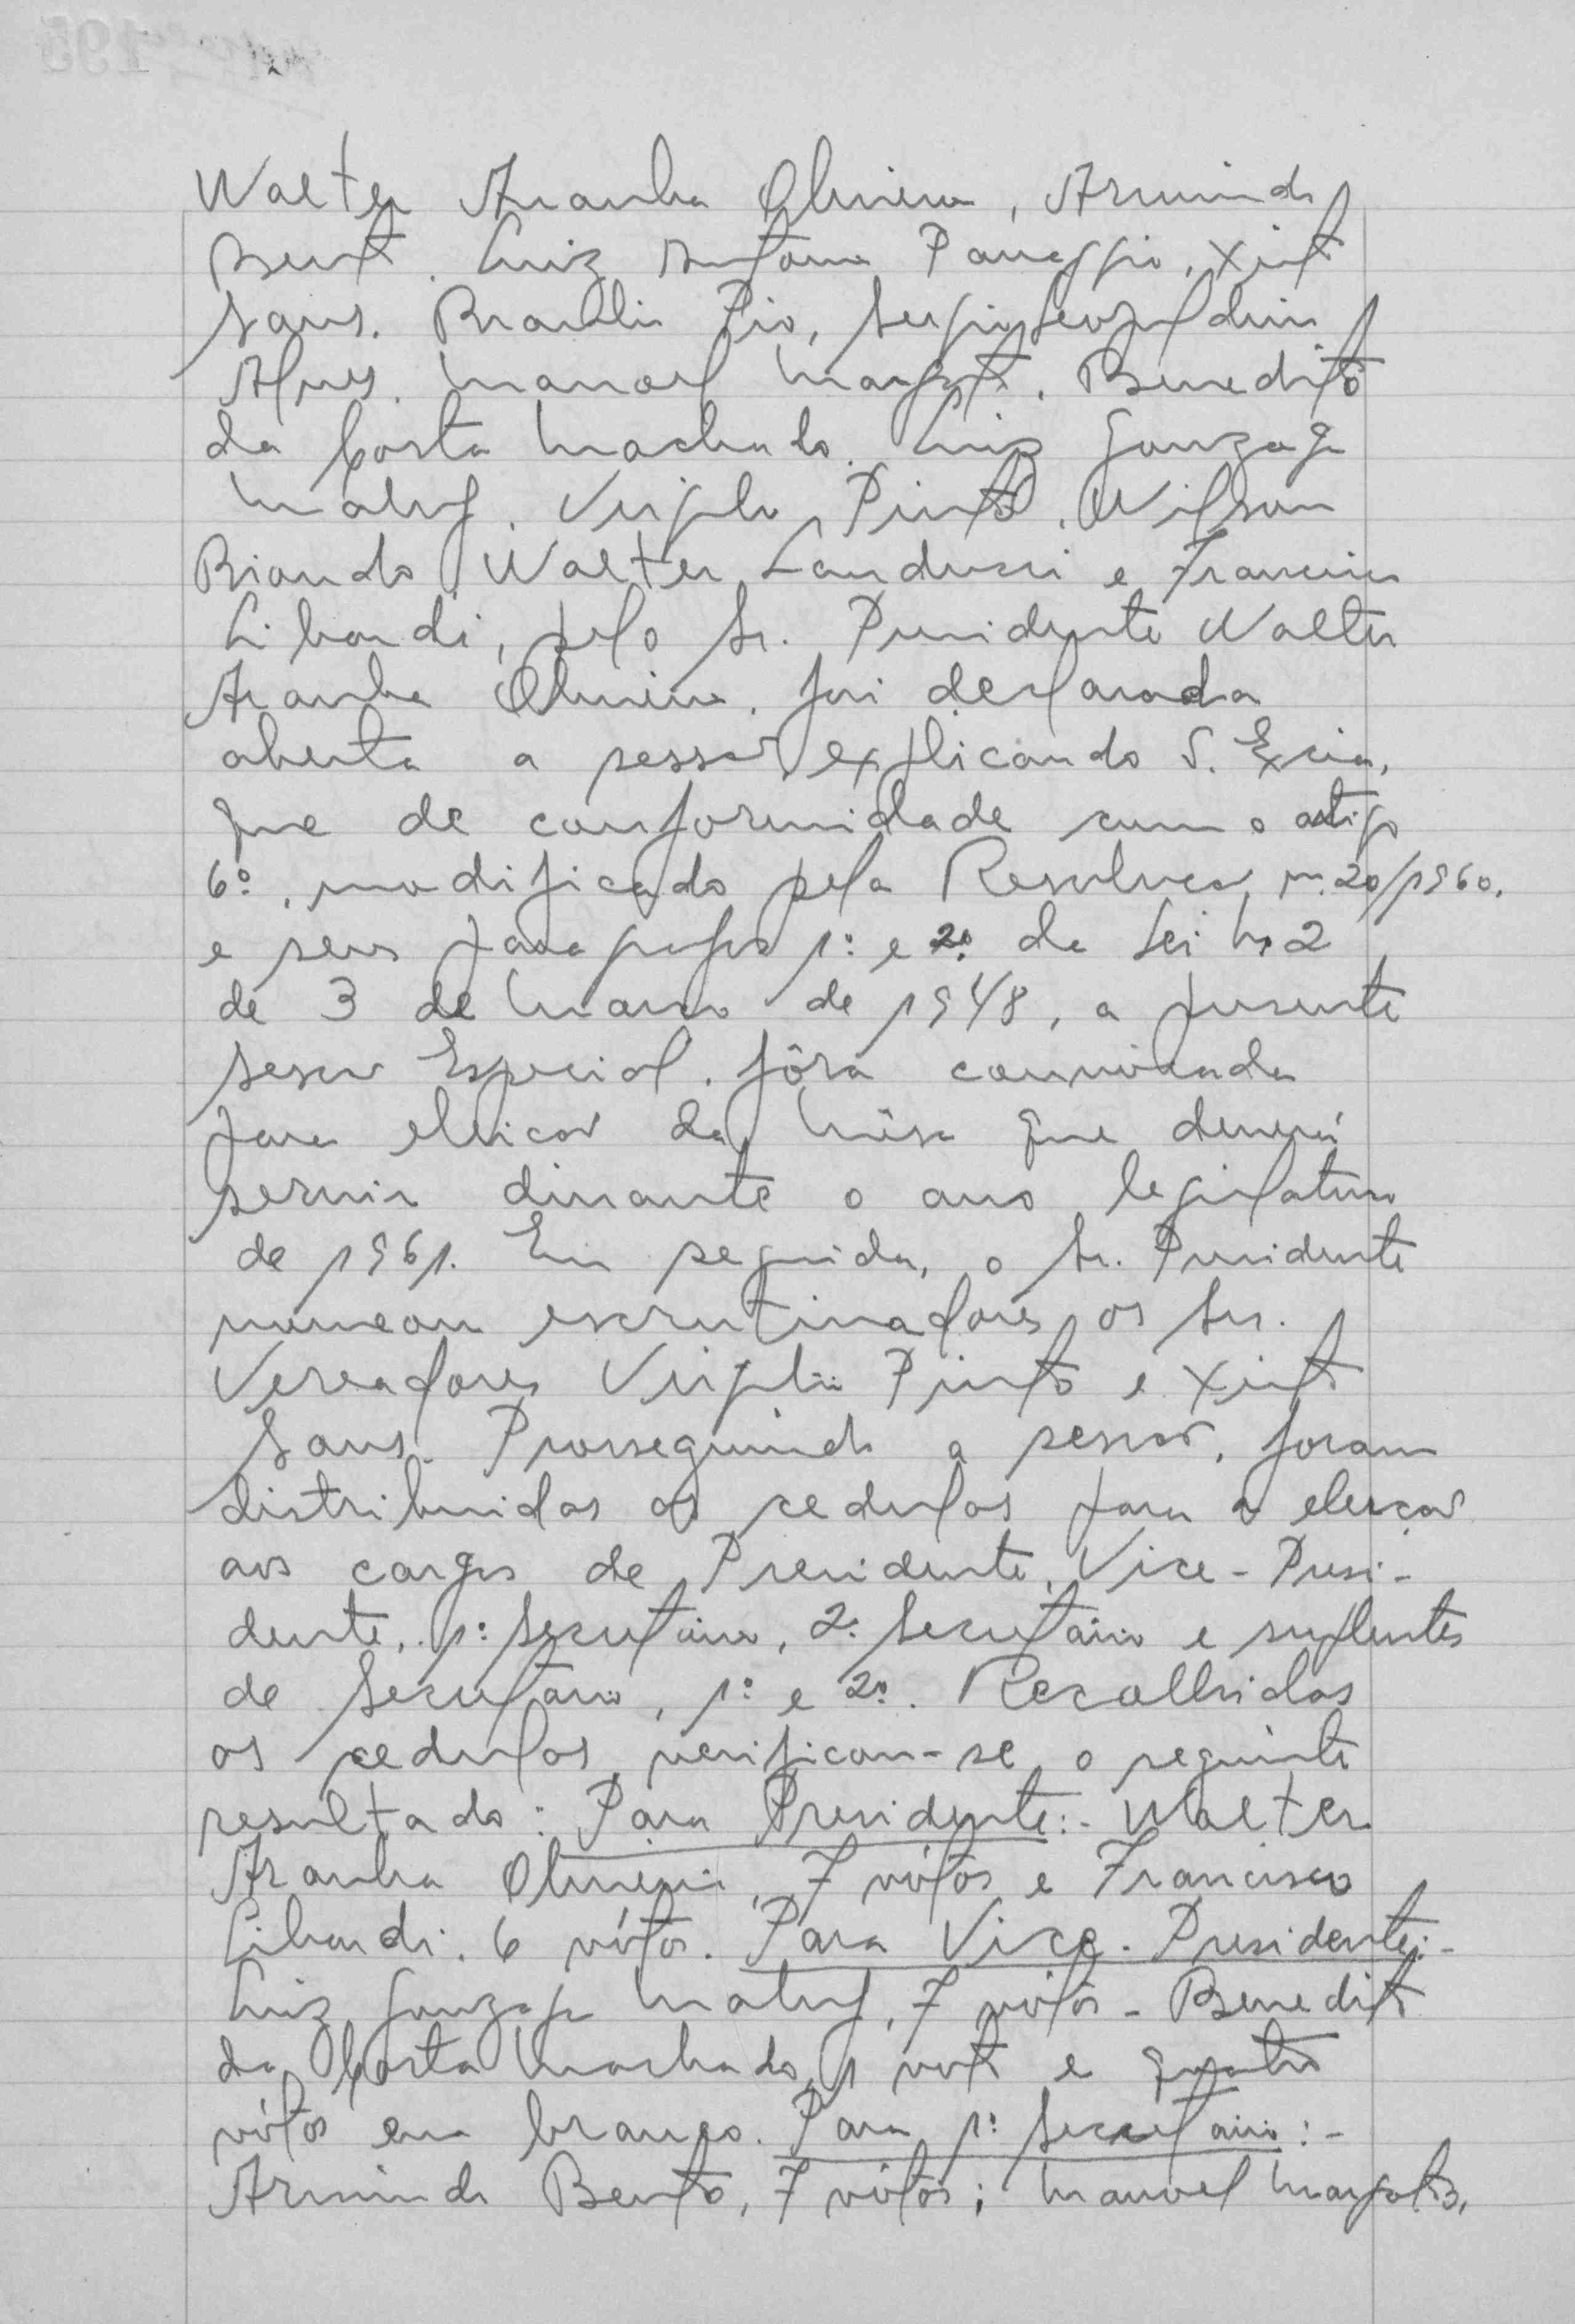 Walter Aranha Oliveira, Armindo
Bento. Luiz Antonio Panaggio, Xisto
Sans. Brasilio Pio, Sergio Leopoldino
Alves. Manoel Margato. Benedito
da Costa Machado. Luiz Gonzaga
Maluf. Virgilio Pinto. Wilson
Briando Walter Landucci e Francisco
Libardi, pelo Sr. Presidente Walter
Aranha Oliveira. foi declarada
aberta a sessão, explicando S. Excia,
que de conformidade com o artigo
6º, modificado pela Resolução, n. 20/1960.
e seus paragrafos 1º e 2º. da Lei nº 2
de 3 de Março de 1948, a presente
sessão Especial. fôra convocada
para eleição da Mêsa que deverá
servir durante o ano legislativo
de 1961. Em seguida, o Sr. Presidente
nomeou escrutinadores os Srs.
Vereadores Virgilio Pinto e Xisto
Sans. Prosseguindo a sessão, foram
distribuidas as cedulas para a eleição
aos cargos de Presidente, Vice-Presi-
dente, 1º Secretário, 2º Secretário e suplentes
de Secretário, 1º e 2º. Recolhidas
as cedulas, verificou-se o seguinte
resultado: Para Presidente:- Walter
Aranha Oliveira, 7 vótos e Francisco
Libardi. 6 vótos. Para Vice-Presidente:-
Luiz Gonzaga Maluf, 7 vótos - Benedito
da Costa Machado, 1 voto e quatro
vótos em branco. Para 1º Secretário:-
Armindo Bento, 7 vótos; Manoel Margato,